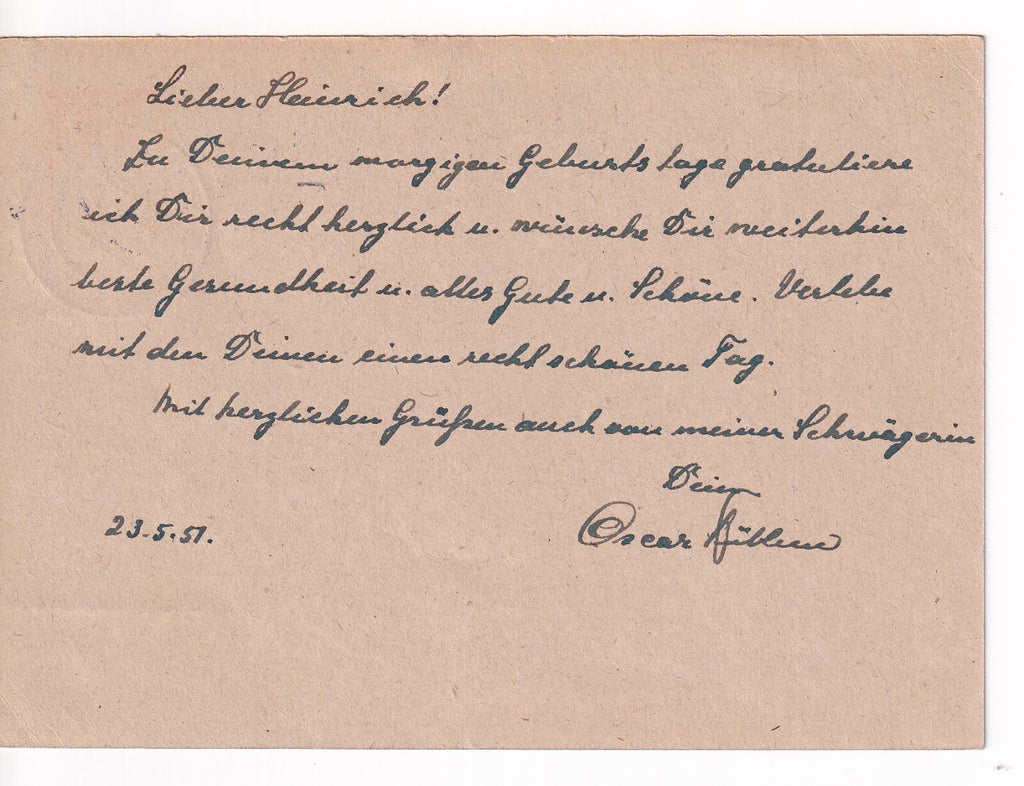 Lieber Heinrich!
Zu Deinem morgigen Geburtstage gratuliere
ich Dir recht herzlich u. wünsche Dir weiterhin
beste Gesundheit u. alles Gute u. Schöne. Verlebe
mit den Deinen einen recht schönen Tag.
Mit herzlichen Grüßen auch von meiner Schwägerin
Dein
23.5.51.
Oscar